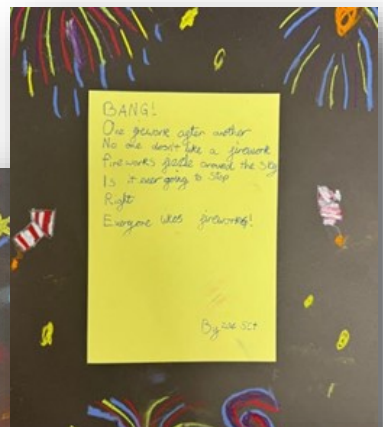 BANG!
One firework after another
No one doesn't like a firework
Fireworks around the sky
Is it ever going to stop
Right
Everyone likes fireworks!
By